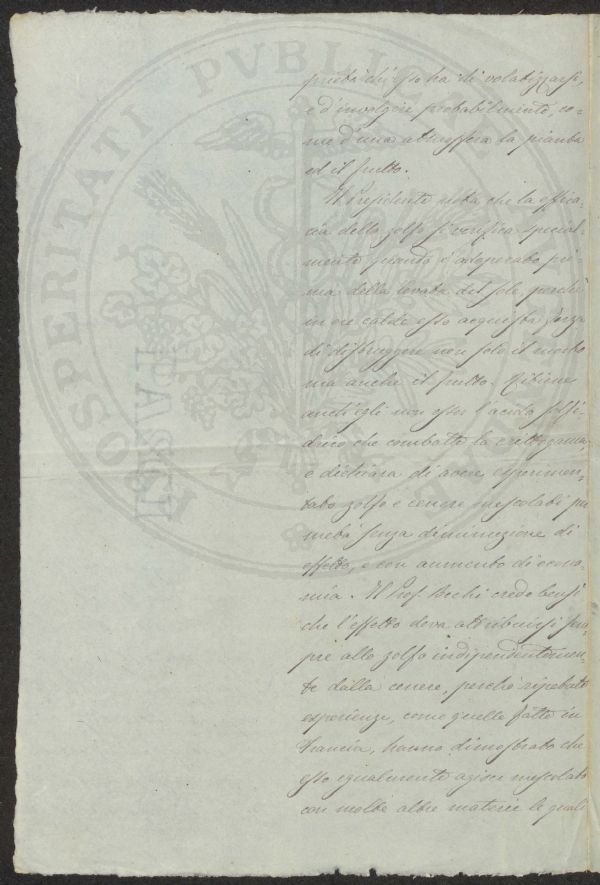 prietà ch'esso ha di volatizzarsi,
e d'involgere probabilmente, co=
me d'una atmosfera la pianta
ed il frutto.
Il Presidente nota, che la effica=
cia dello zolfo si verifica special=
mente quando è adoperato pri=
ma della levata del sole, perchè
in ore calde esso acquista forza
di distruggere non solo il morbo
ma anche il frutto. Ritiene
anch'egli non esser l'acido solfi=
drico che combatte la crittogama,
e dichiara di avere esperimen=
tato zolfo e cenere mescolati per
metà senza diminuzione di
effetto, e con aumento di econo=
mia. Il Prof. Bechi crede bensì
che l'effetto deva attribuirsi sem=
pre allo zolfo indipendentemen=
te dalla cenere, perchè ripetute
esperienze, come quelle fatte in
Francia, hanno dimostrato che
esso egualmente agisce mescolato
con molte altre materie le quali
PROSPERITATI PVBLICAE